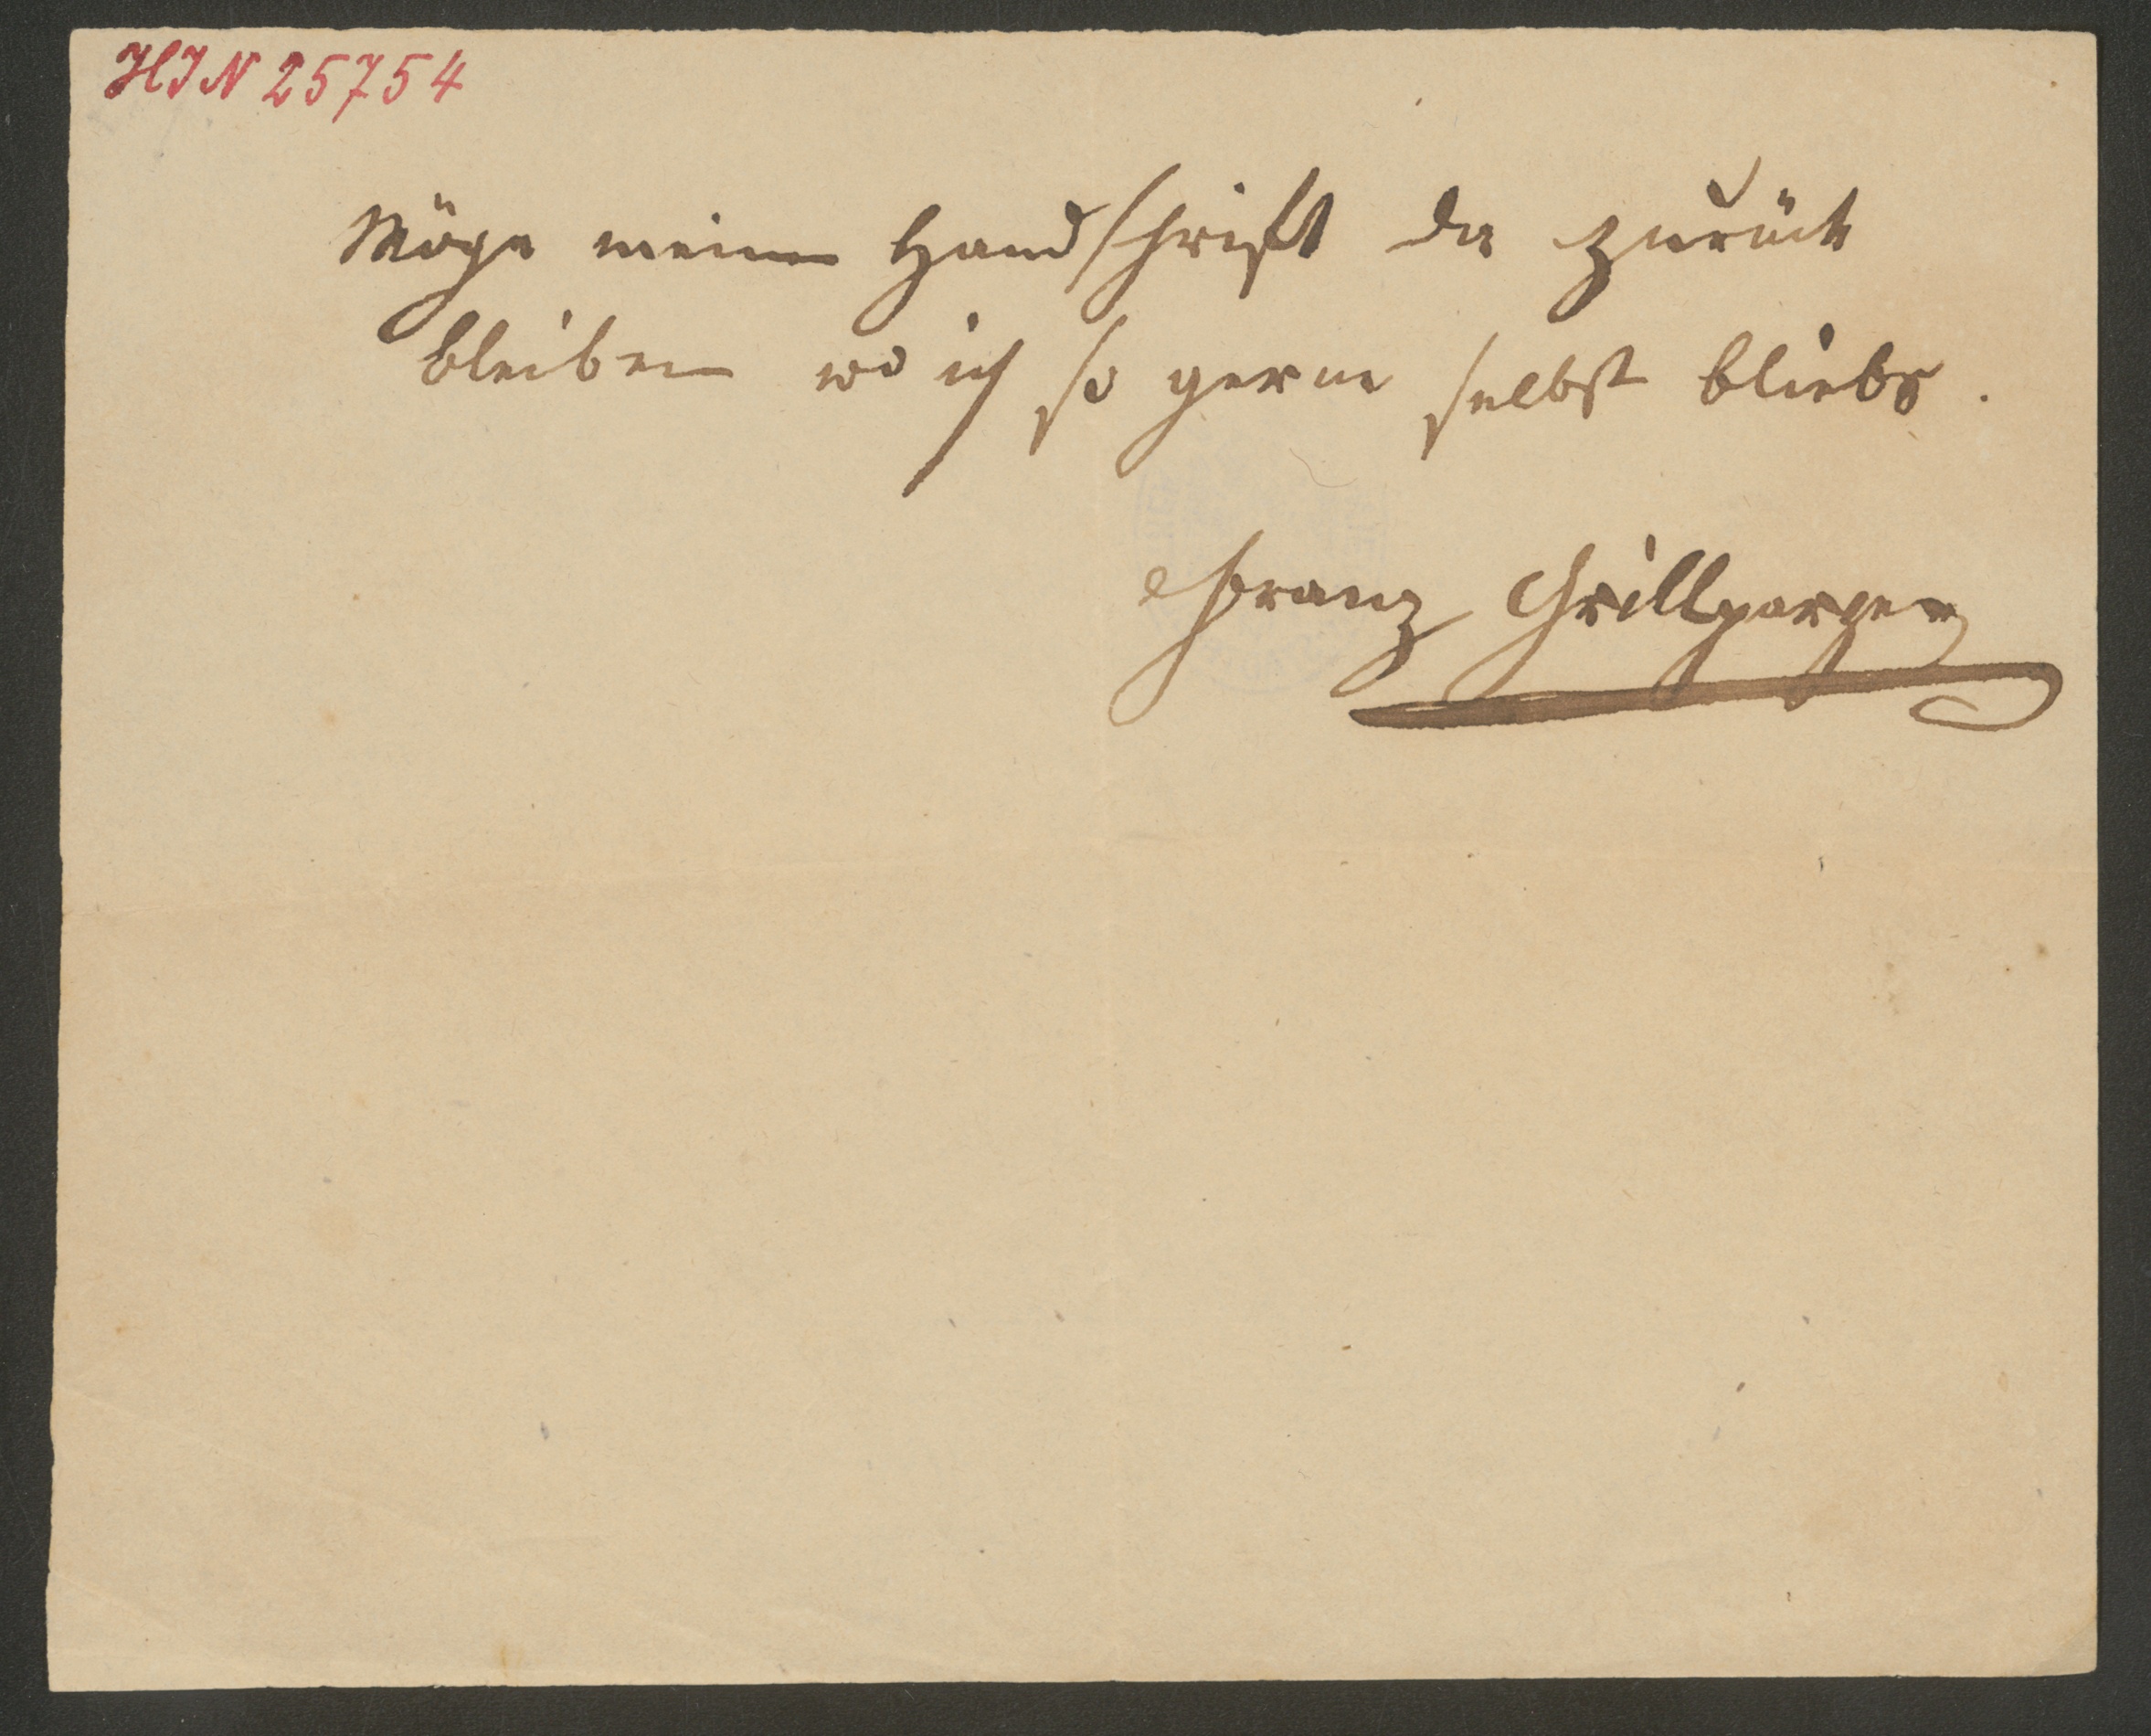 HIN 25754
Möge meine Handschrift da zurück
bleiben wo ich so gerne selbst bliebe.
Franz Grillparzer